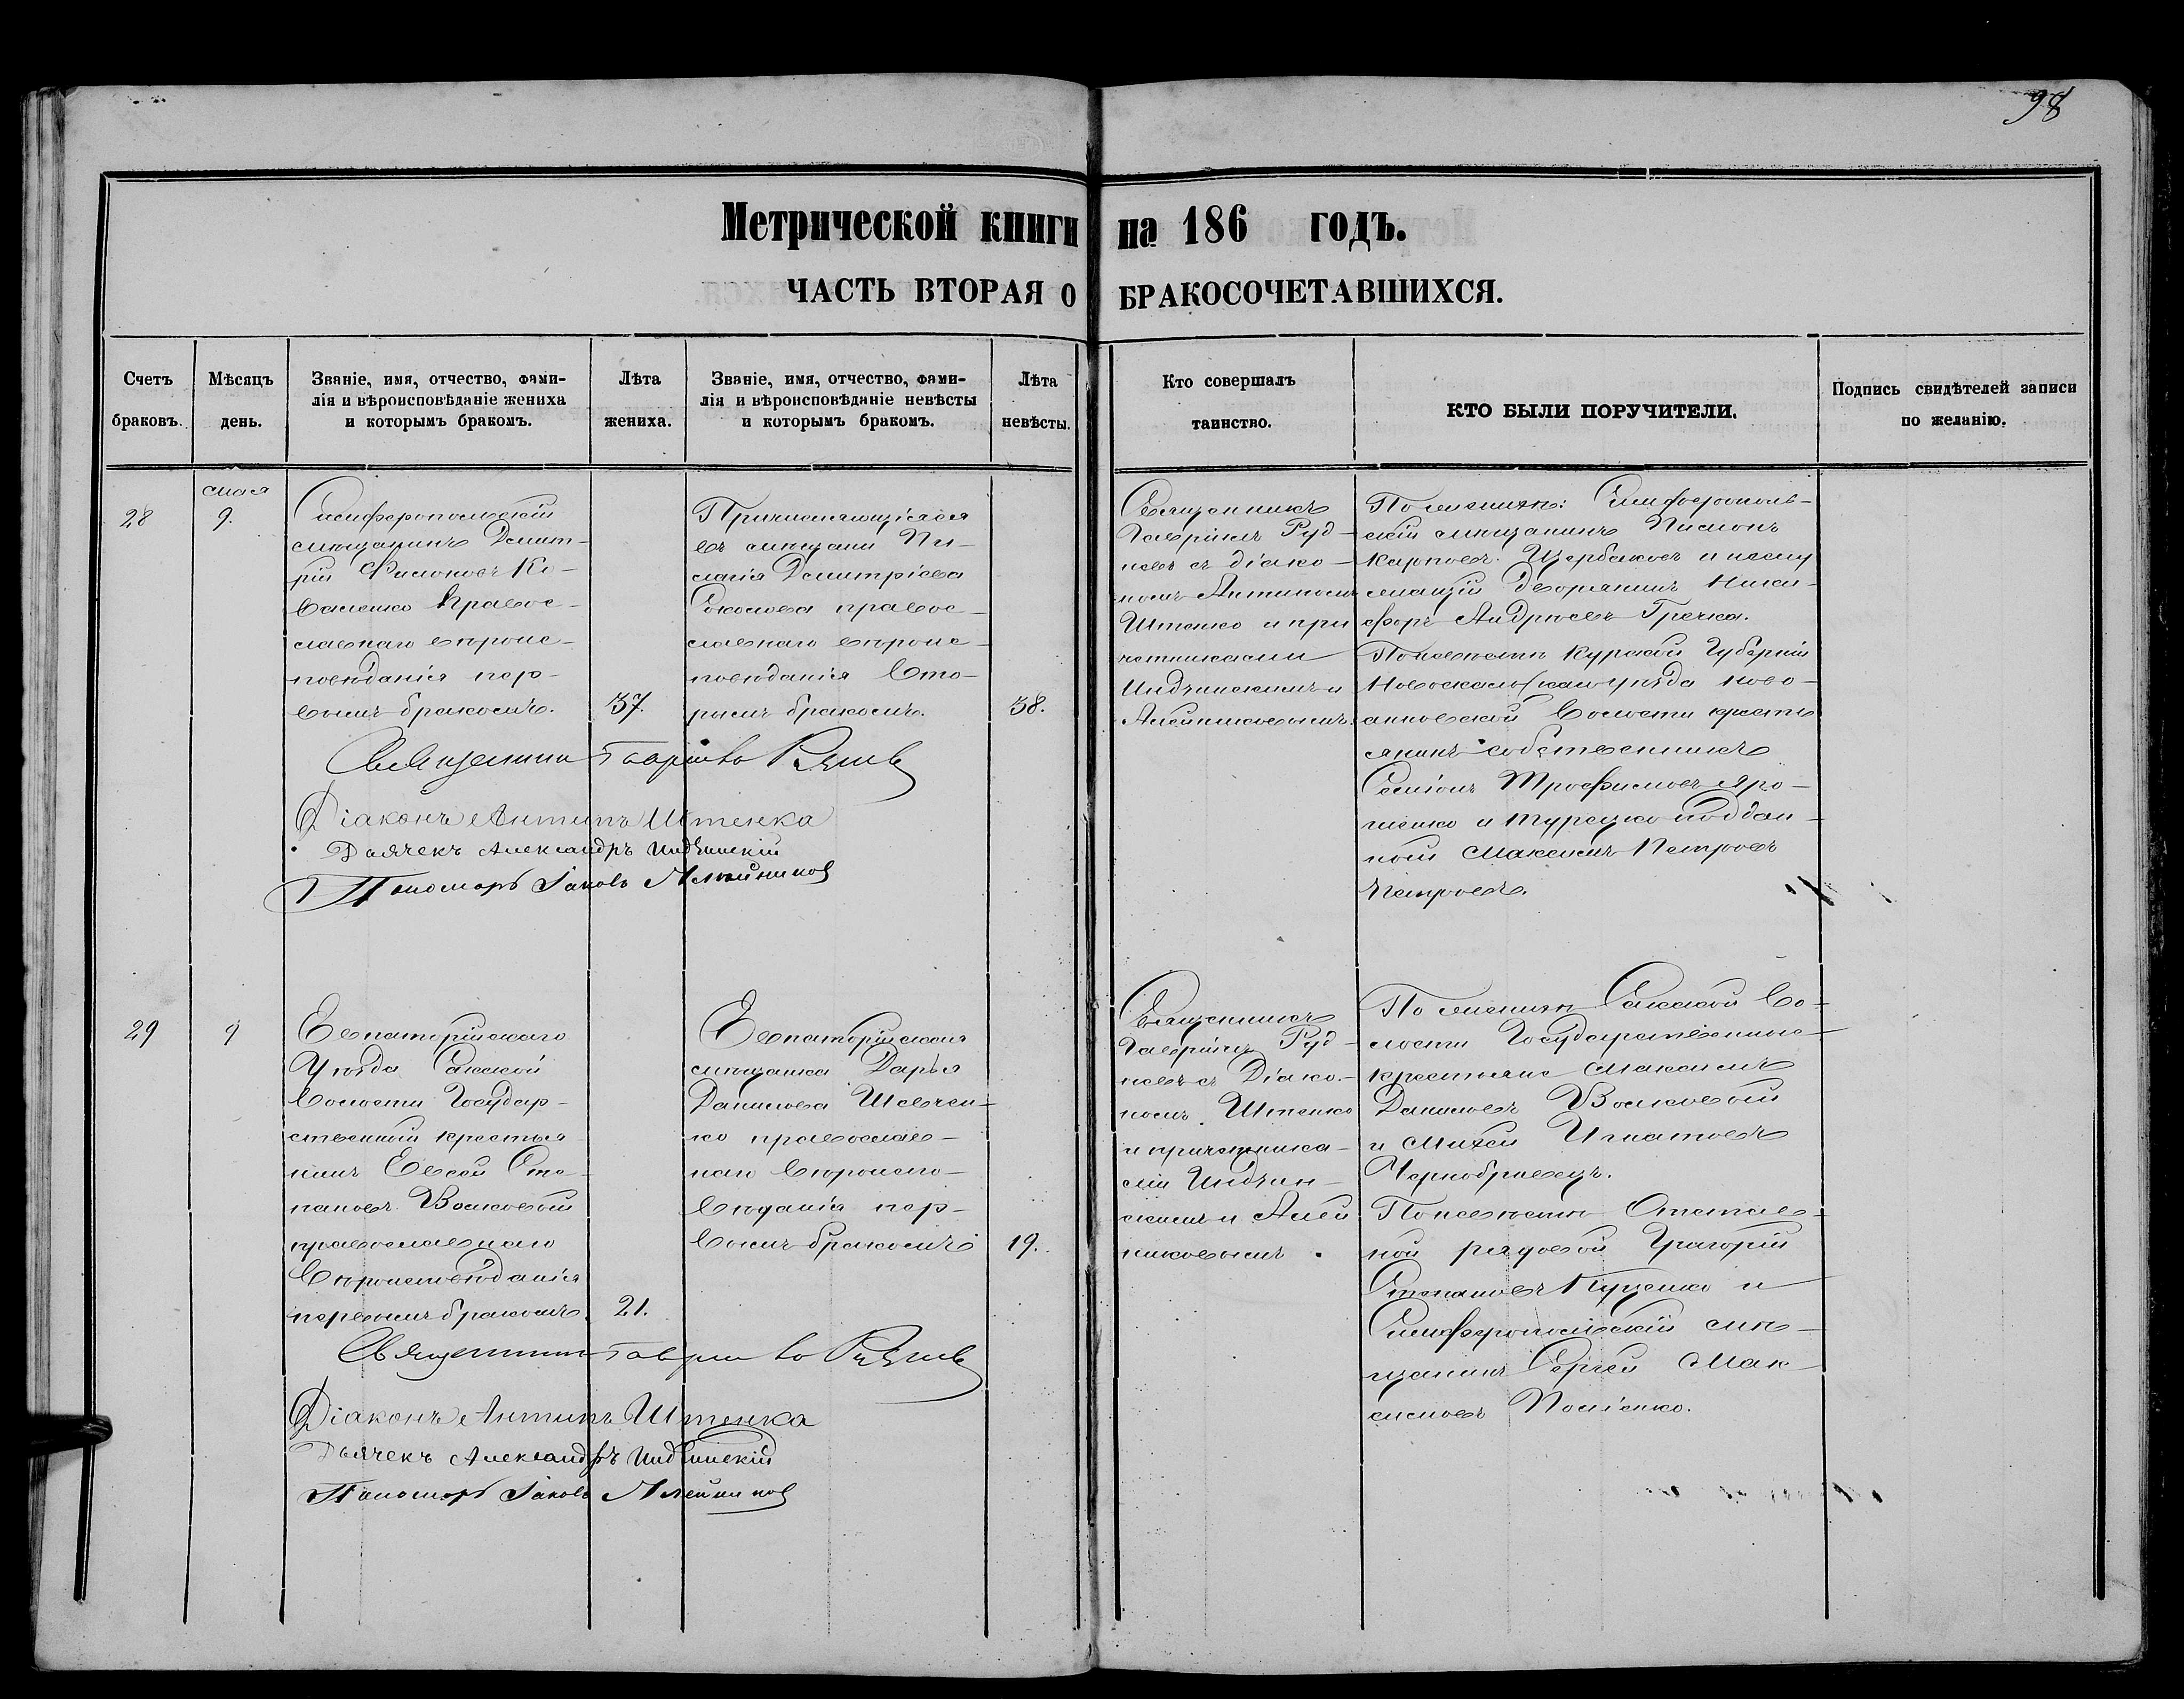 98
Метрической книги на 186 годъ.
ЧАСТЬ ВТОРАЯ О БРАКОСОЧЕТАВШИХСЯ.
Счетъ
браковъ.
Мѣсяцъ
день.
Званіе, имя, отчество, фами-
лія и вѣроисповѣданіе жениха
и которымъ бракомъ.
Лѣта
жениха.
Званіе, имя, отчество, фами-
лія и вѣроисповѣданіе невѣсты
и которымъ бракомъ.
Лѣта
невѣсты.
Кто совершалъ
таинство.
КТО БЫЛИ ПОРУЧИТЕЛИ.
Подпись свидѣтелей записи
по желанію.
28
мая
9.
Симферопольскій
мѣщанинъ Дмит-
рій Филоновъ Ко-
валенко правос-
лавнаго вѣроис-
повѣданія пер-
вымъ бракомъ.
37.
Причисляющіяся
въ мѣщани Пе-
лагія Дмитріева
правос-
лавнаго вѣроис-
повѣданія Вто-
рымъ бракомъ.
38.
Священникъ
Гавріилъ Руд-
невъ съ діако-
номъ Антипомъ
Штенко и при
четниками
Индзинскимъ и
Алейниковымъ.
По женихѣ: Симферополь-
скій мѣщанинъ Пимонъ
Карповъ Щербаковъ и
дворянинъ Ники-
форъ Андреевъ Гречка.
По невѣстѣ Курской Губерніи
Новооскольскаго уѣзда ново-
Волости кресть
янинъ собственникъ
Семіонъ Трофимовъ Яро-
шенко и турецко поддан-
ной Максимъ Петровъ
Петровъ.
Священникъ Гавріилъ Рудневъ
Діаконъ Антипъ Штенка
Дьячекъ Александръ Индзинскій
Пономарь Іаковъ Алейниковъ
29
9
Евпаторійскаго
Уѣзда Сакской
Волости Государ-
ственный крестья
нинъ Евсей Сте-
пановъ Волковой
православнаго
Вѣроисповѣданія
первымъ бракомъ.
21.
Евпаторійская
мѣщанка Дарья
Данилова Шевчен-
ко православ-
наго Вѣроиспо-
вѣданія пер-
вымъ бракомъ
19.
Священникъ
Гавріилъ Руд-
невъ съ Діако-
номъ Штенко
и причетника-
ми Индзин-
скимъ и Алей
никовымъ.
По женихѣ Сакской Во-
лости Государственные
крестьяне Максимъ
Даниловъ Волковой
и Михей Игнатовъ
Чернобривецъ.
По невѣстѣ Отстав-
ной рядовой Григорій
Степановъ Куценко и
Симферопольскій мѣ-
щанинъ Сергей Мак
симовъ
Священникъ Гавріилъ Рудневъ
Діаконъ Антипъ Штенка
Дьячекъ Александръ Индзинскій
Пономарь Іаковъ Алейниковъ